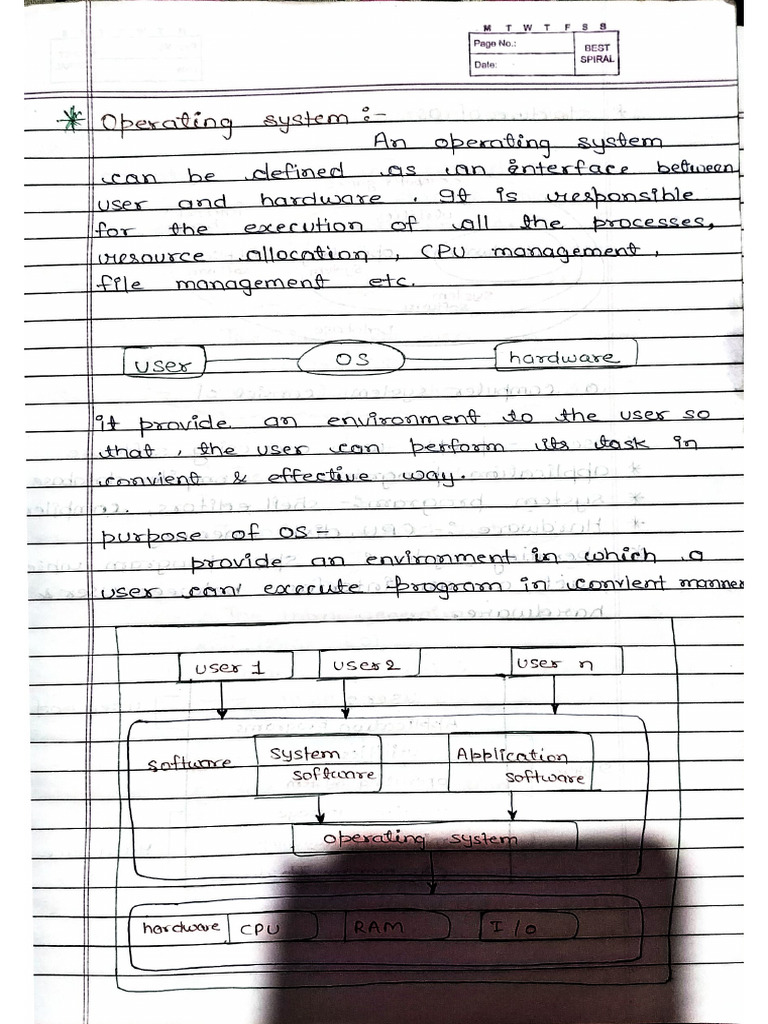 M T W T F S S
Page No.:
Date:
BEST
SPIRAL
* Operating system :-
An operating system
can be defined as an interface between
user and hardware. It is responsible
for the execution of all the processes,
resource allocation, CPU management,
file management etc.
user OS hardware
it provide an environment to the user so
that, the user can perform its task in
convient & effective way.
purpose of OS -
provide an environment in which a
user can execute program in convient manner
user 1 user 2 user n
software System software Application software
operating system
hardware CPU RAM I/O